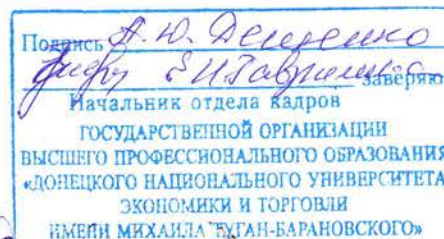 Подпись А. Ю. Деменко
Е И Гаврилица заверяю
Начальник отдела кадров
ГОСУДАРСТВЕННОЙ ОРГАНИЗАЦИИ
ВЫСШЕГО ПРОФЕССИОНАЛЬНОГО ОБРАЗОВАНИЯ
«ДОНЕЦКОГО НАЦИОНАЛЬНОГО УНИВЕРСИТЕТА
ЭКОНОМИКИ И ТОРГОВЛИ
ИМЕНИ МИХАИЛА ТУГАН-БАРАНОВСКОГО»